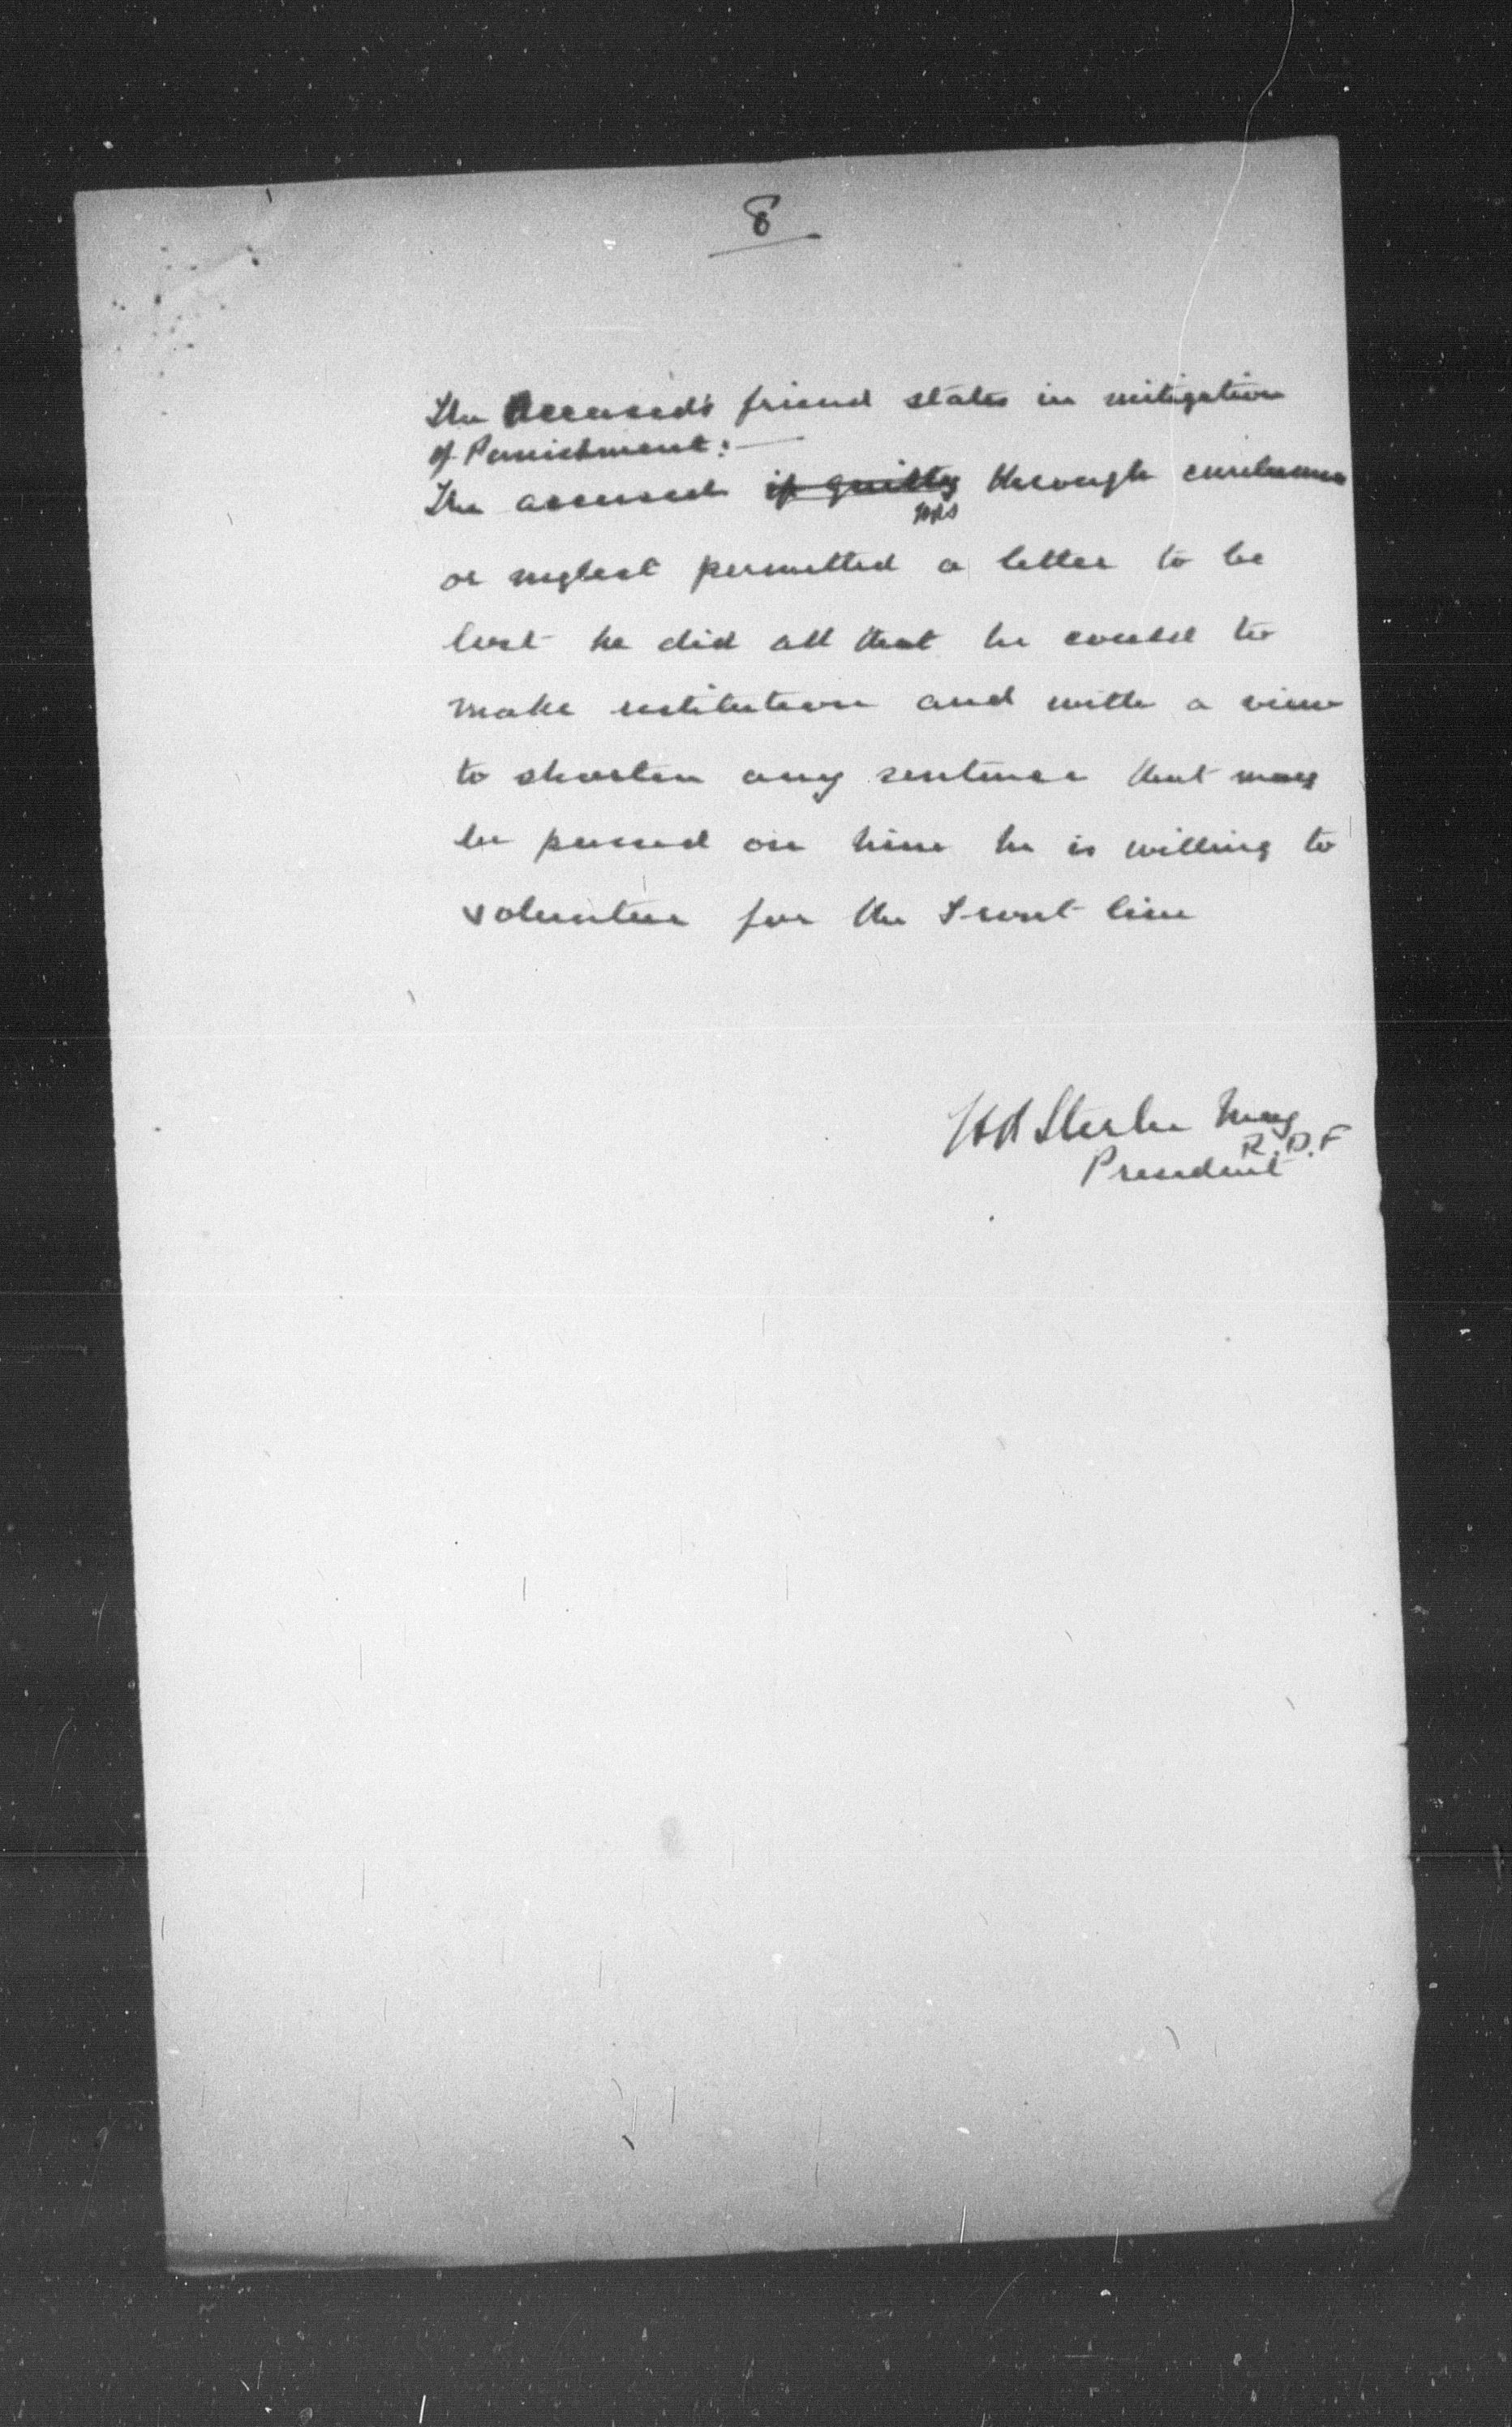 8
The Accused's friend states in mitigation
of Punishment: —
The accused if guilty through carelessness
or neglect permitted a letter to be
lost he did all that he could to
make restitution and with a view
to shorten any sentence that may
be passed on him he is willing to
volunteer for the Front line
Maj
R.D.F
President